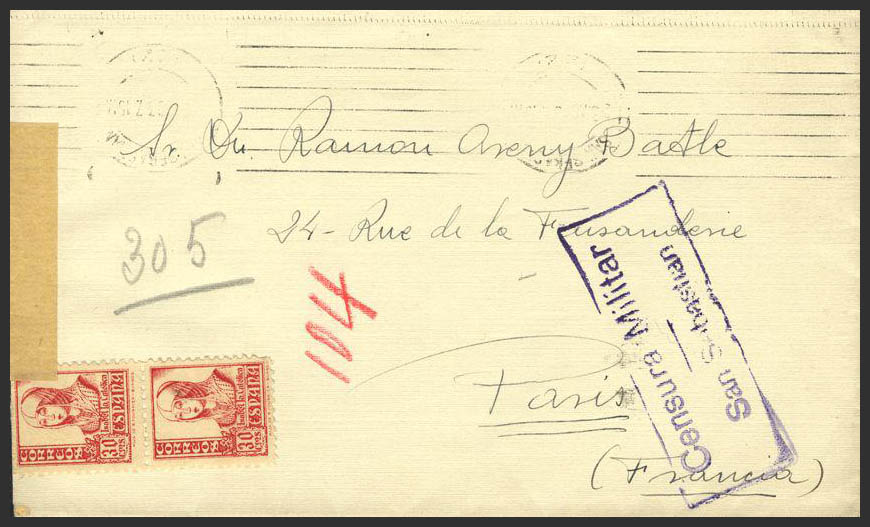 Sr. Dn. Ramon Areny Batle
24- Rue de la Faisanderie
Paris
(Francia)
305
104
Censura Militar
San Sebastian
CORREOS
30 CTS
Isabel la Católica
ESPAÑA
CORREOS
30 CTS
Isabel la Católica
ESPAÑA